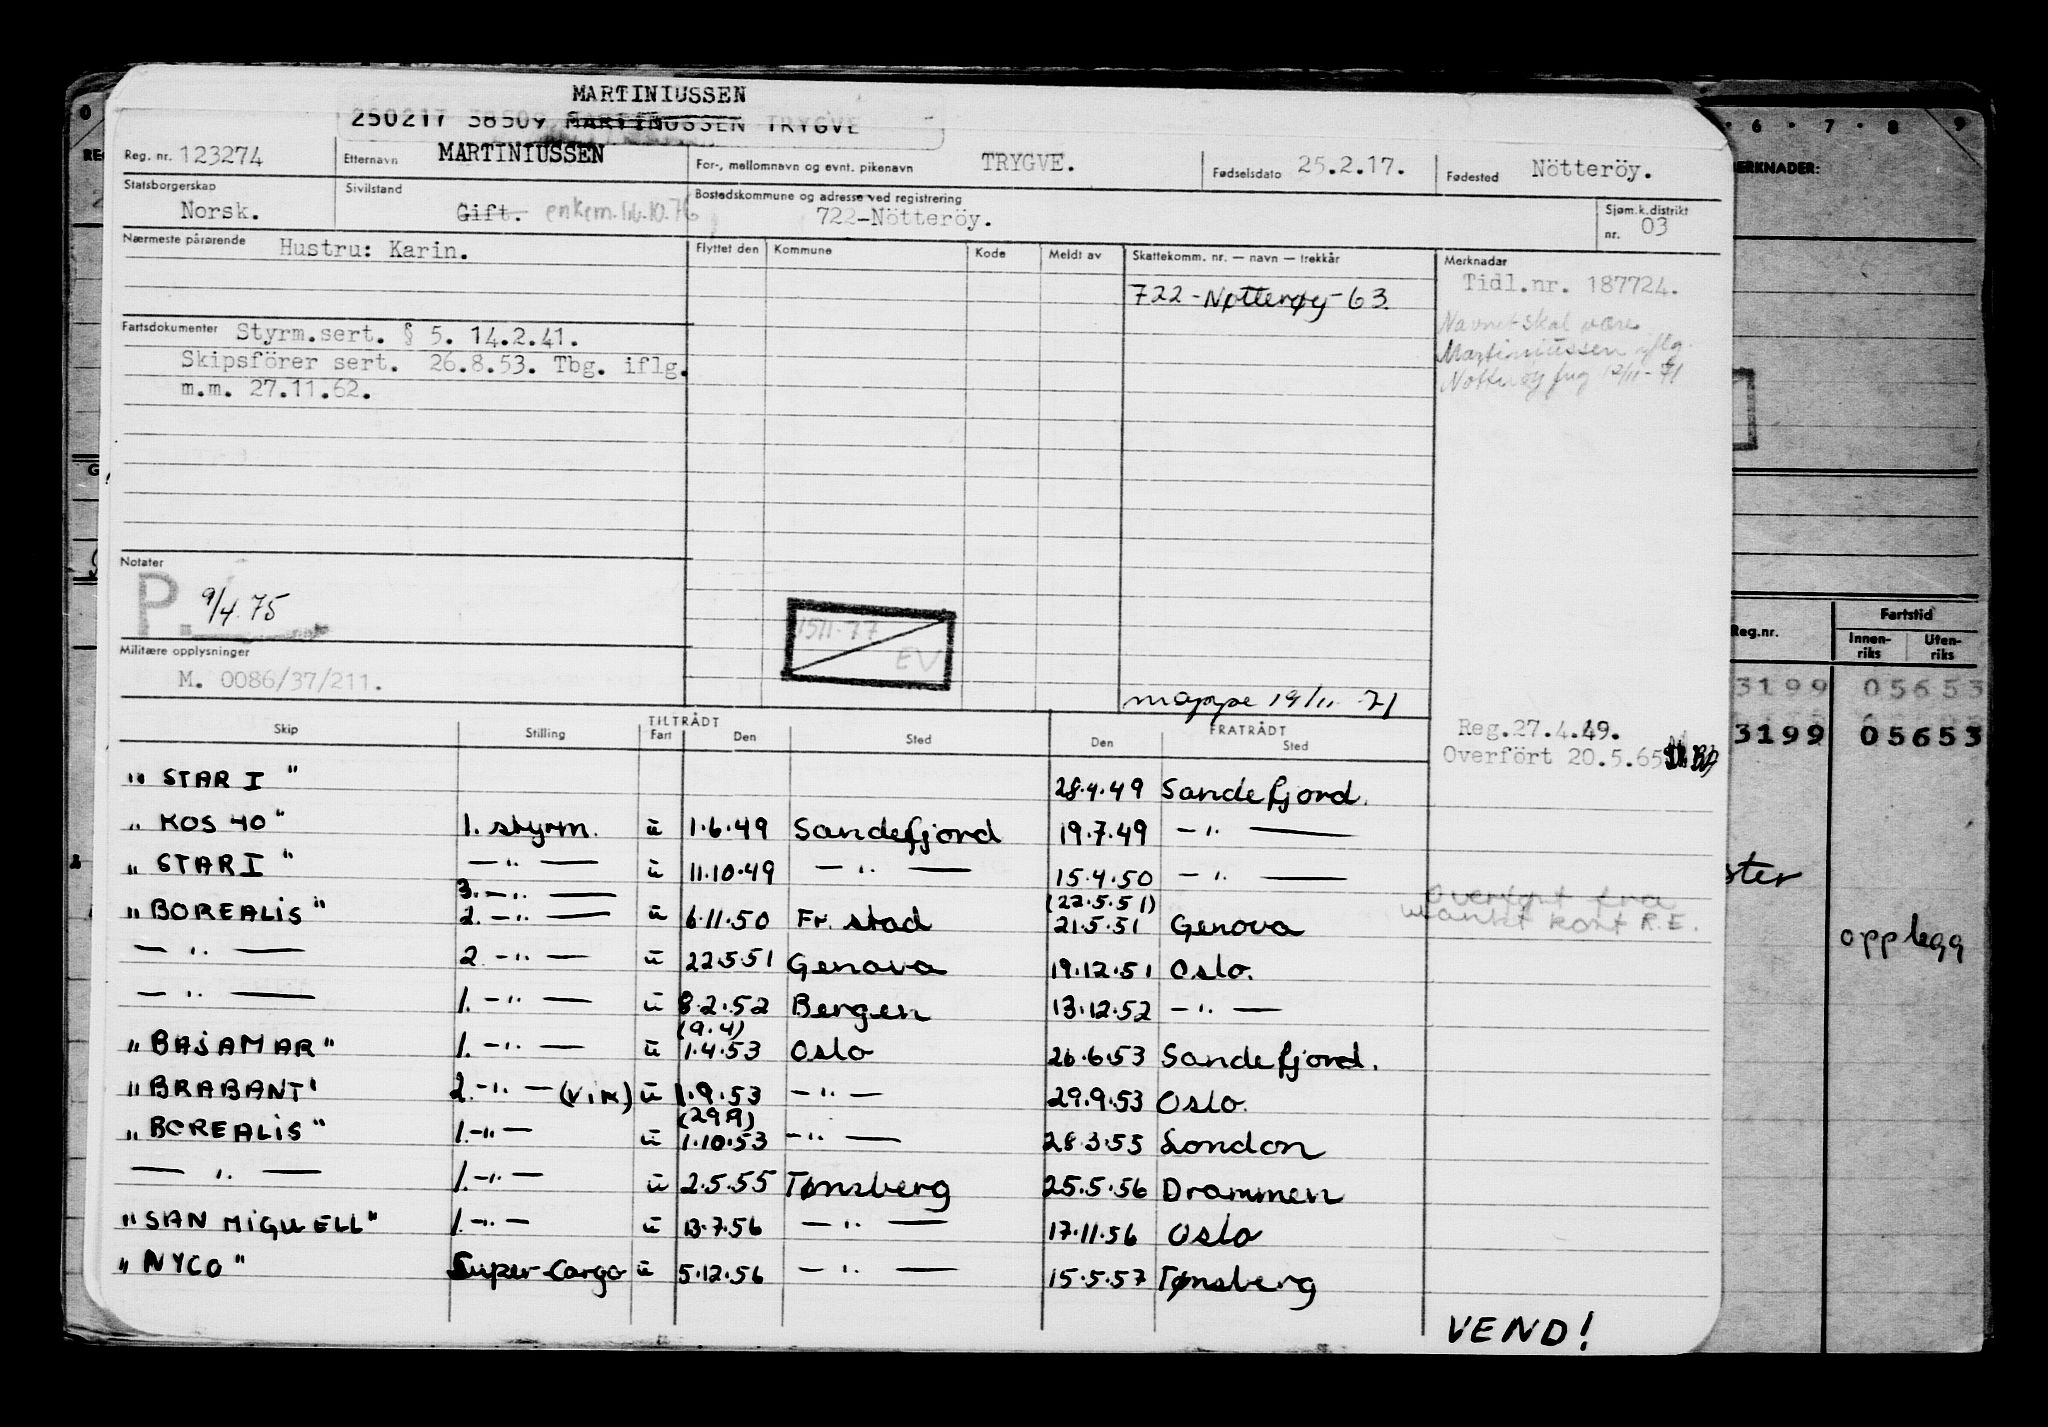 MARTINIUSSEN
250217 38509 MARTINUSSEN TRYGVE
Reg. nr. 123274 Etternavn MARTINIUSSEN For-, mellomnavn og evnt. pikenavn TRYGVE. Fødselsdato 25.2.17. Fødested Nötteröy.
Statsborgerskap Norsk. Sivilstand Gift. enkem. 16.10.76 Bostedskommune og adresse ved registrering 722-Nötteröy. Sjøm.k.distrikt nr. 03
Nærmeste pårørende Hustru: Karin. Flyttet den Kommune Kode Meldt av Skattekomm. nr. — navn — trekkår Merknadar
722 - Nøtterøy - 63 Tidl.nr. 187724.
Navnet skal være
Martiniussen iflg.
Nøtterøy fng 12/11-71
Fartsdokumenter Styrm.sert. § 5. 14.2.41.
Skipsförer sert. 26.8.53. Tbg. iflg.
m.m. 27.11.62.
Notater
P. 9/4.75
EV
Militære opplysninger
M. 0086/37/211.
mappe 19/11-71
Skip Stilling TILTRÅDT Fart Den Sted FRATRÅDT Den Sted
Reg.27.4.49.
Overfört 20.5.65
" STAR I " 28.4.49 Sandefjord.
" KOS 40 " 1. styrm. u 1.6.49 Sandefjord 19.7.49 — " —
" STAR I " — " — u 11.10.49 — " — 15.4.50 — " —
3. — " — (22.5.51)
" BOREALIS " 2. — " — u 6.11.50 Fr. stad 21.5.51 Genova
Overført fra
blankt kort R.E.
— " — 2. — " — u 22.5.51 Genova 19.12.51 Oslo.
— " — 1. — " — u 8.2.52 Bergen 13.12.52 — " —
(9.4)
" BAJAMAR " 1. — " — u 1.4.53 Oslo 26.6.53 Sandefjord.
" BRABANT " 2. — " — (vik) u 1.9.53 — " — 29.9.53 Oslo.
(29.9)
" BOREALIS " 1. — " — u 1.10.53 — " — 28.3.55 London
— " — 1. — " — u 2.5.55 Tønsberg 25.5.56 Drammen
" SAN MIGUELL " 1. — " — u 13.7.56 — " — 17.11.56 Oslo
" NYCO " Super-Cargo u 5.12.56 — " — 15.5.57 Tønsberg
VEND!
0
6 7 8 9
MERKNADER:
Reg.nr. Fartstid
Innen-riks Uten-riks
3199 05653
3199 05653
opplegg